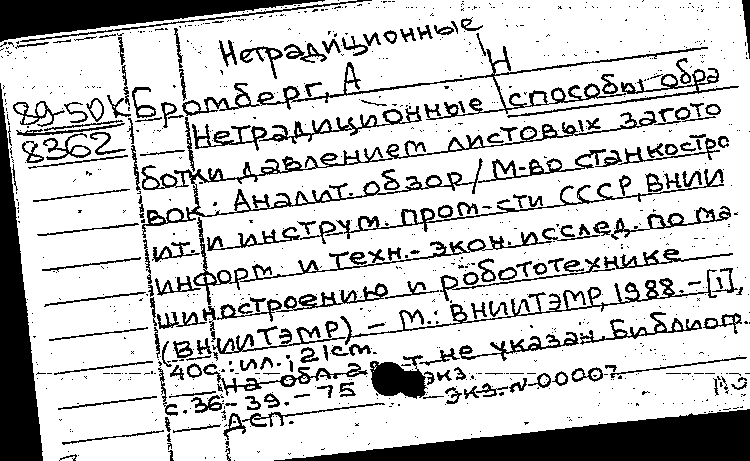 Нетрадиционные
89-50К
8362
Бромберг, А Н
Нетрадиционные способы обра
ботки давлением листовых загото
вок: Аналит. обзор / М-во станкостро
ит. и инструм. пром-сти СССР, ВНИИ
информ. и техн.-экон. исслед. по ма-
шиностроению и робототехнике
(ВНИИТЭМР) – М.: ВНИИТЭМР, 1988. – [1],
40с.: ил.; 21см.
На обл. авт. не указан. Библиогр.
с. 36-39. – 75 экз.
ДСП. экз. N 00007.